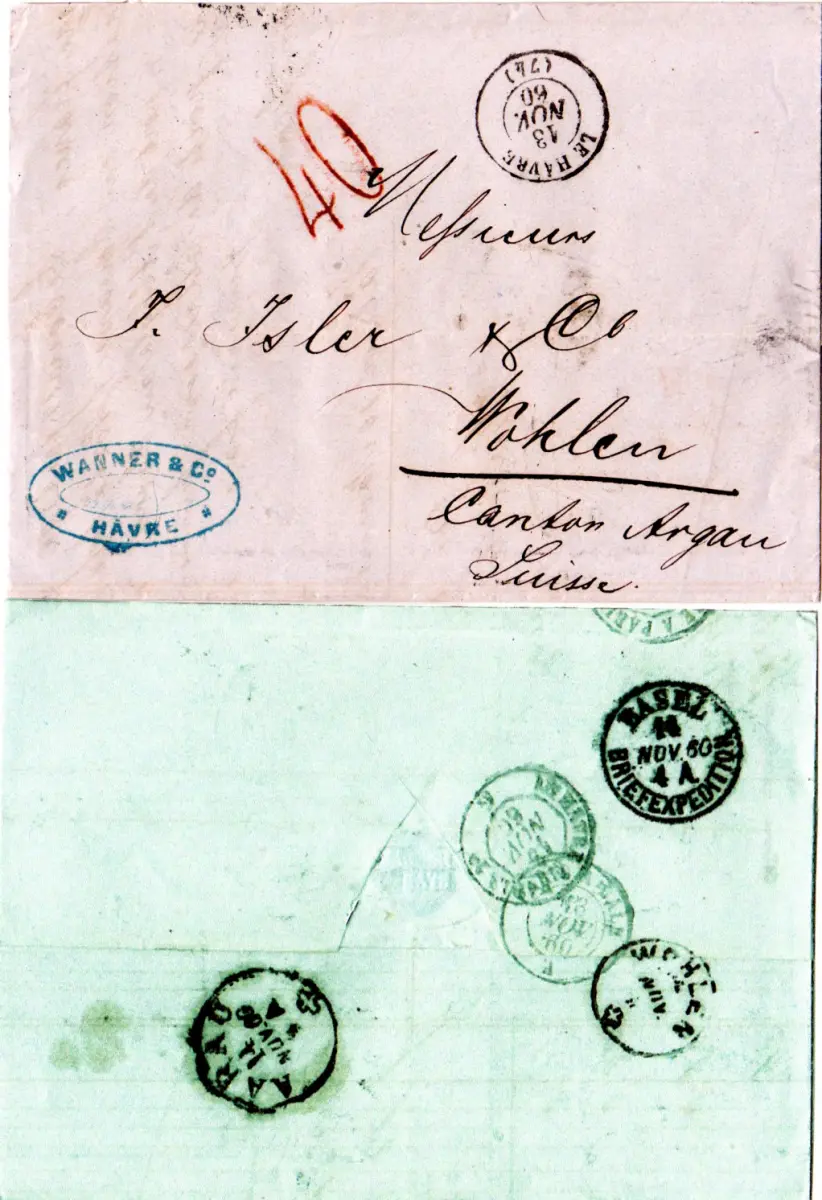 LE HÂVRE
13
NOV.
60
(74)
40
Messieurs
I. Isler & Co
Wohlen
Canton Argau
Suisse.
WANNER & Co
HÂVRE
BASEL
NOV. 60
4 A
BRIEFEXPEDITION
NOV
60
WOHLEN
NOV.
AARAU
14
NOV 60
A